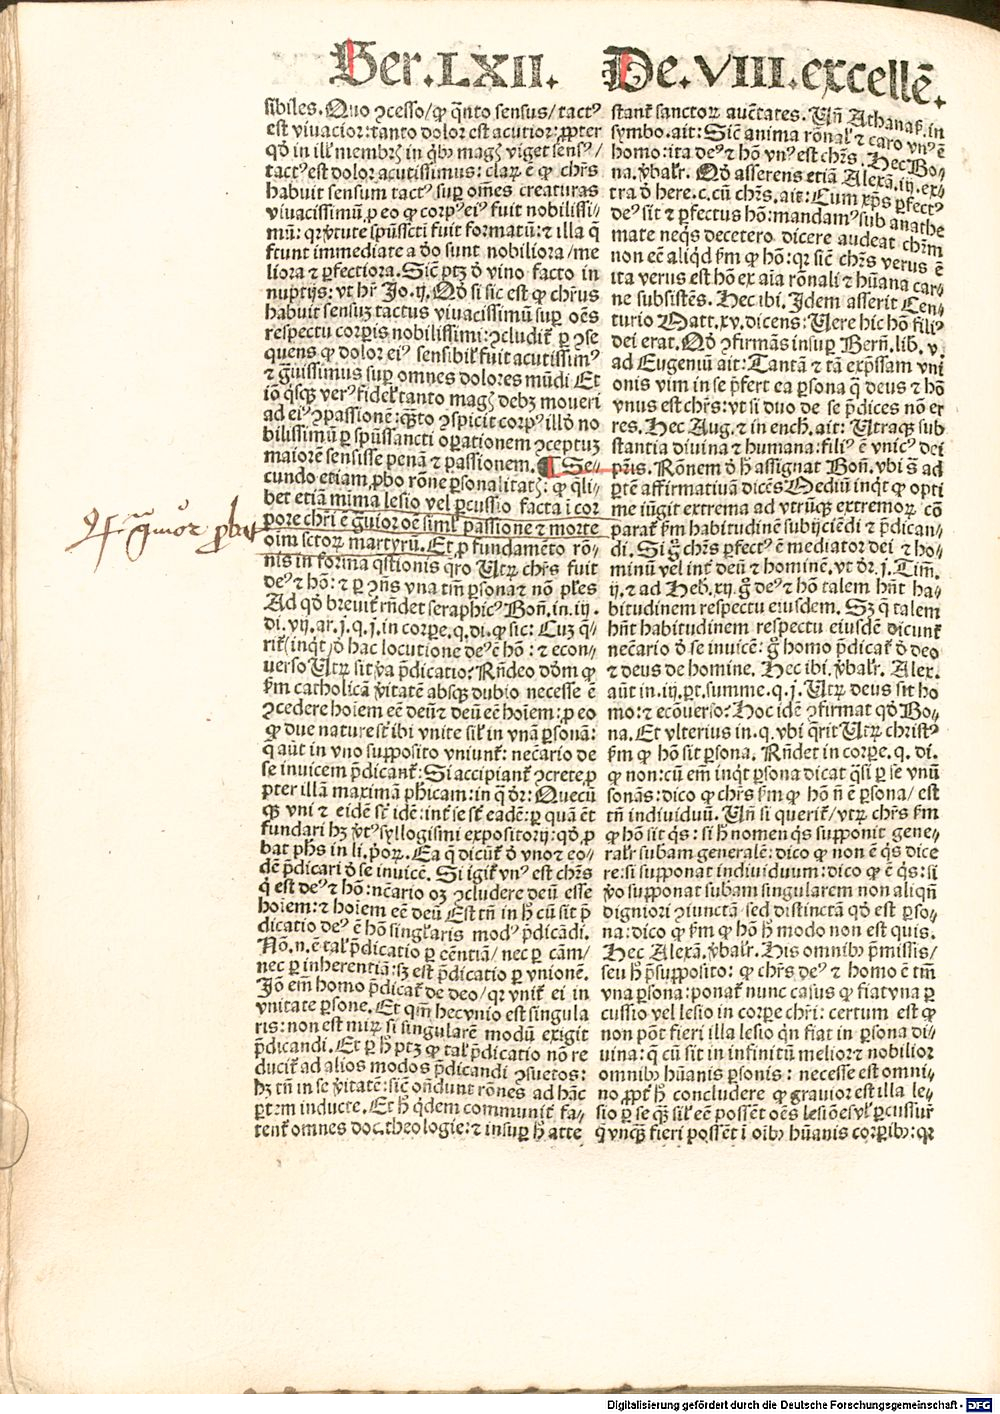 Ser.LXII. De.VIII.excellē.
sibiles. Quo ꝯcesso/ꝙ q̄nto sensus/tactꝰ
est viuacior: tanto dolor est acutior: ꝓpter
qd̓ in ill̓ membrꝭ in qͥbꝰ magꝭ viget sensꝰ/
tactꝰ est dolor acutissimus: claꝝ ē ꝙ chr̄s
habuit sensum tactꝰ suꝑ om̄es creaturas
viuacissimū ꝑ eo ꝙ corpꝰ eiꝰ fuit nobilissi-
mū: qr v̓tute sp̄ussc̄ti fuit formatū: ⁊ illa q̄
fiunt immediate a deo sunt nobiliora/me
liora ⁊ ꝑfectiora. Sic̄ ptꝫ d̓ vino facto in
nuptijs: vt hr̄ Jo. ij. Qd̓ si sic est ꝙ chr̄us
habuit sensuꝫ tactus viuacissimū suꝑ oēs
respectu corꝑis nobilissimi: ꝯcludit̄ ꝑ ꝯse
quens ꝙ dolor eiꝰ sensibil̓ fuit acutissimꝰ
⁊ g̓uissimus suꝑ omnes dolores mūdi Et
iō qͥsqꝫ verꝰ fidel̓ tanto magꝭ debꝫ moueri
ad eiꝰ ꝯpassionē: qͣꝫto ꝯspicit corpꝰ ill̓ no
bilissimū ꝑ sp̄ussancti oꝑationem ꝯceptuꝫ
maiorē sensisse penā ⁊ passionem. ¶ Se-
cundo etiam ꝓbo rōne ꝑsonalitatꝭ: ꝙ qͥli-
bet etiā mima lesio vel ꝑcussio facta ī cor
pore chr̄i ē g̓uior oē siml̓ passione ⁊ morte
oīm sctoꝝ martyrū. Et ꝓ fundamēto rō-
nis in forma qstionis qro Utꝝ chr̄s fuit
deꝰ ⁊ hō: ⁊ ꝑ ꝯn̄s vna tm̄ ꝑsona ⁊ nō pl̓es
Ad qd̓ breuit̄ rn̄det seraphicꝰ Boñ. in. iij.
di. vij. ar. j. q. j. in corꝑe. q. di. ꝙ sic: Cuꝫ q̄-
rit̄ (inqͥt) d̓ hac locutione deꝰ ē hō: ⁊ econ-
uerso Utꝝ sit v̓a p̄dicatio? Rn̄deo dd̓m ꝙ
ẜm catholicā v̓itatē absqꝫ dubio necesse ē
ꝯcedere hoiem eē deū ⁊ deū eē hoiem: ꝑ eo
ꝙ due nature st̄ ibi vnite sil̓ in vnā ꝑsonā:
q̄ aūt in vno supposito vniunt̄: nec̄ario de
se inuicem p̄dicant̄: Si accipiant̄ ꝯcrete ꝑ
pter illā maximā ph̓icam: in q̄ d̓r: Quecū
qꝫ vni ⁊ eidē st̄ idē: int̄ se st̄ eadē: ꝑ quā ēt
fundari hꝫ v̓tꝰ syllogismi expositorij: qd̓ ꝓ
bat ph̓s in li. p̄oꝝ. Ea q̄ dicūt̄ d̓ vno ⁊ eo-
dē p̄dicari d̓ se inuicē. Si igit̄ vnꝰ est chr̄s
q̓ est deꝰ ⁊ hō: nc̄ario oꝫ ꝯcludere deū esse
hoiem: ⁊ hoiem eē deū Est tn̄ in h̓ cū sit p̄
dicatio deꝰ ē hō singl̓aris modꝰ p̄dicādi.
Nō. n. ē tal̓ p̄dicatio ꝑ cēntiā/nec ꝑ cām/
nec ꝑ inherentiā: sꝫ est p̄dicatio ꝑ vnionē.
Jō em̄ homo p̄dicat̄ de deo/qr vnit̄ ei in
vnitate ꝑsone. Et qm̄ hec vnio est singula
ris: non est miꝝ si singularē modū exigit
p̄dicandi. Et ꝑ h̓ ptꝫ ꝙ tal̓ p̄dicatio nō re
ducit̄ ad alios modos p̄dicandi ꝯsuetos:
hꝫ tn̄ in se v̓itatē: sic̄ on̄dunt rōnes ad hāc
ꝑtem inducte. Et h̓ qͥdem communit̄ fa-
tent̄ omnes doc. theologie: ⁊ insuꝑ h̓ atte
stant̄ sanctoꝝ auc̄tates. Un̄ Athanaẜ. in
symbo. ait: Sic̄ anima rōnal̓ ⁊ caro vnꝰ ē
homo: ita deꝰ ⁊ hō vnꝰ est chr̄s. Hec Bo-
na. v̓balr̄. Qd̓ asserens etiā Alexā. iij. ex-
tra d̓ here. c. cū chr̄s. ait: Cum xp̄s ꝑfectꝰ
deꝰ sit ⁊ ꝑfectus hō: mandamꝰ sub anathe
mate neqͥs decetero dicere audeat chr̄m
non eē aliqͥd ẜm ꝙ hō: qr sic̄ chr̄s verus ē
ita verus est hō ex aīa rōnali ⁊ hūana car-
ne subsistēs. Hec ibi. Idem asserit Cen-
turio Matt. xv. dicens: Uere hic hō filiꝰ
dei erat. Qd̓ ꝯfirmās insuꝑ Berñ. lib. v.
ad Eugeniū ait: Tantā ⁊ tā exp̄ssam vni
onis vim in se p̄fert ea ꝑsona q̄ deus ⁊ hō
vnus est chr̄s: vt si duo de se p̄dices nō er
res. Hec Aug. ⁊ in ench. ait: Utraqꝫ sub
stantia diuina ⁊ humana: filiꝰ ē vnicꝰ dei
pr̄is. Rōnem d̓ h̓ assignat Boñ. vbi s̄ ad
ꝑtē affirmatiuā dicēs Mediū inqͥt ꝙ opti
me iūgit extrema ad vtrūqꝫ extremoꝝ cō
parat̄ ẜm habitudinē subijciēdi ⁊ p̄dican-
di. Si g̓ chr̄s ꝑfectꝰ ē mediator dei ⁊ ho-
minū vel int̄ deū ⁊ hominē. vt d̓r. j. Tim̄.
ij. ⁊ ad Heb̓. xij. g̓ deꝰ ⁊ hō talem hn̄t ha-
bitudinem respectu eiusdem. Sꝫ q̄ talem
hn̄t habitudinem respectu eiusdē dicunt̄
nec̄ario d̓ se inuicē: g̓ homo p̄dicat̄ d̓ deo
⁊ deus de homine. Hec ibi. v̓balr̄. Alex.
aūt in. iij. ꝑt. summe. q. j. Utꝝ deus sit ho
mo: ⁊ ecōuerso? Hoc idē ꝯfirmat qd̓ Bo-
na. Et vlterius in. q. vbi q̄rit Utꝝ christꝰ
ẜm ꝙ hō sit ꝑsona. Rn̄det in corꝑe. q. di.
ꝙ non: cū em̄ inqͥt ꝑsona dicat qͣsi ꝑ se vnū
sonās: dico ꝙ chr̄s ẜm ꝙ hō n̄ ē ꝑsona/est
tn̄ indiuiduū. Un̄ si querit̄/vtꝝ chr̄s ẜm
ꝙ hō sit qͥs: si h̓ nomen qͥs supponit gene-
ralr̄ subam generalē: dico ꝙ non ē qͥs dice
re: si supponat indiuiduum: dico ꝙ ē qͥs: si
v̓o supponat subam singularem non aliqn̄
digniori ꝯiunctā sed distinctā qd̓ est ꝑso-
na: dico ꝙ ẜm ꝙ hō h̓ modo non est quis.
Hec Alexā. v̓balr̄. His omnibꝰ p̄missis/
seu h̓ p̄supposito: ꝙ chr̄s deꝰ ⁊ homo ē tm̄
vna ꝑsona: ponat̄ nunc casus ꝙ fiat vna ꝑ
cussio vel lesio in corꝑe chr̄i: certum est ꝙ
non pōt fieri illa lesio qͥn fiat in ꝑsona di-
uina: q̄ cū sit in infinitū melior ⁊ nobilior
omnibꝰ hūanis ꝑsonis: necesse est omni-
no ꝓpt̄ h̓ concludere ꝙ grauior est illa le-
sio ꝑ se qͣꝫ sil̓ eē possent oēs lesiōes vl̓ ꝑcussiūr̄
q̄ vnqͣꝫ fieri possent ī oībꝰ hūanis corꝑibꝰ: qr
g̓uior ꝓbat
Digitalisierung gefördert durch die Deutsche Forschungsgemeinschaft - DFG